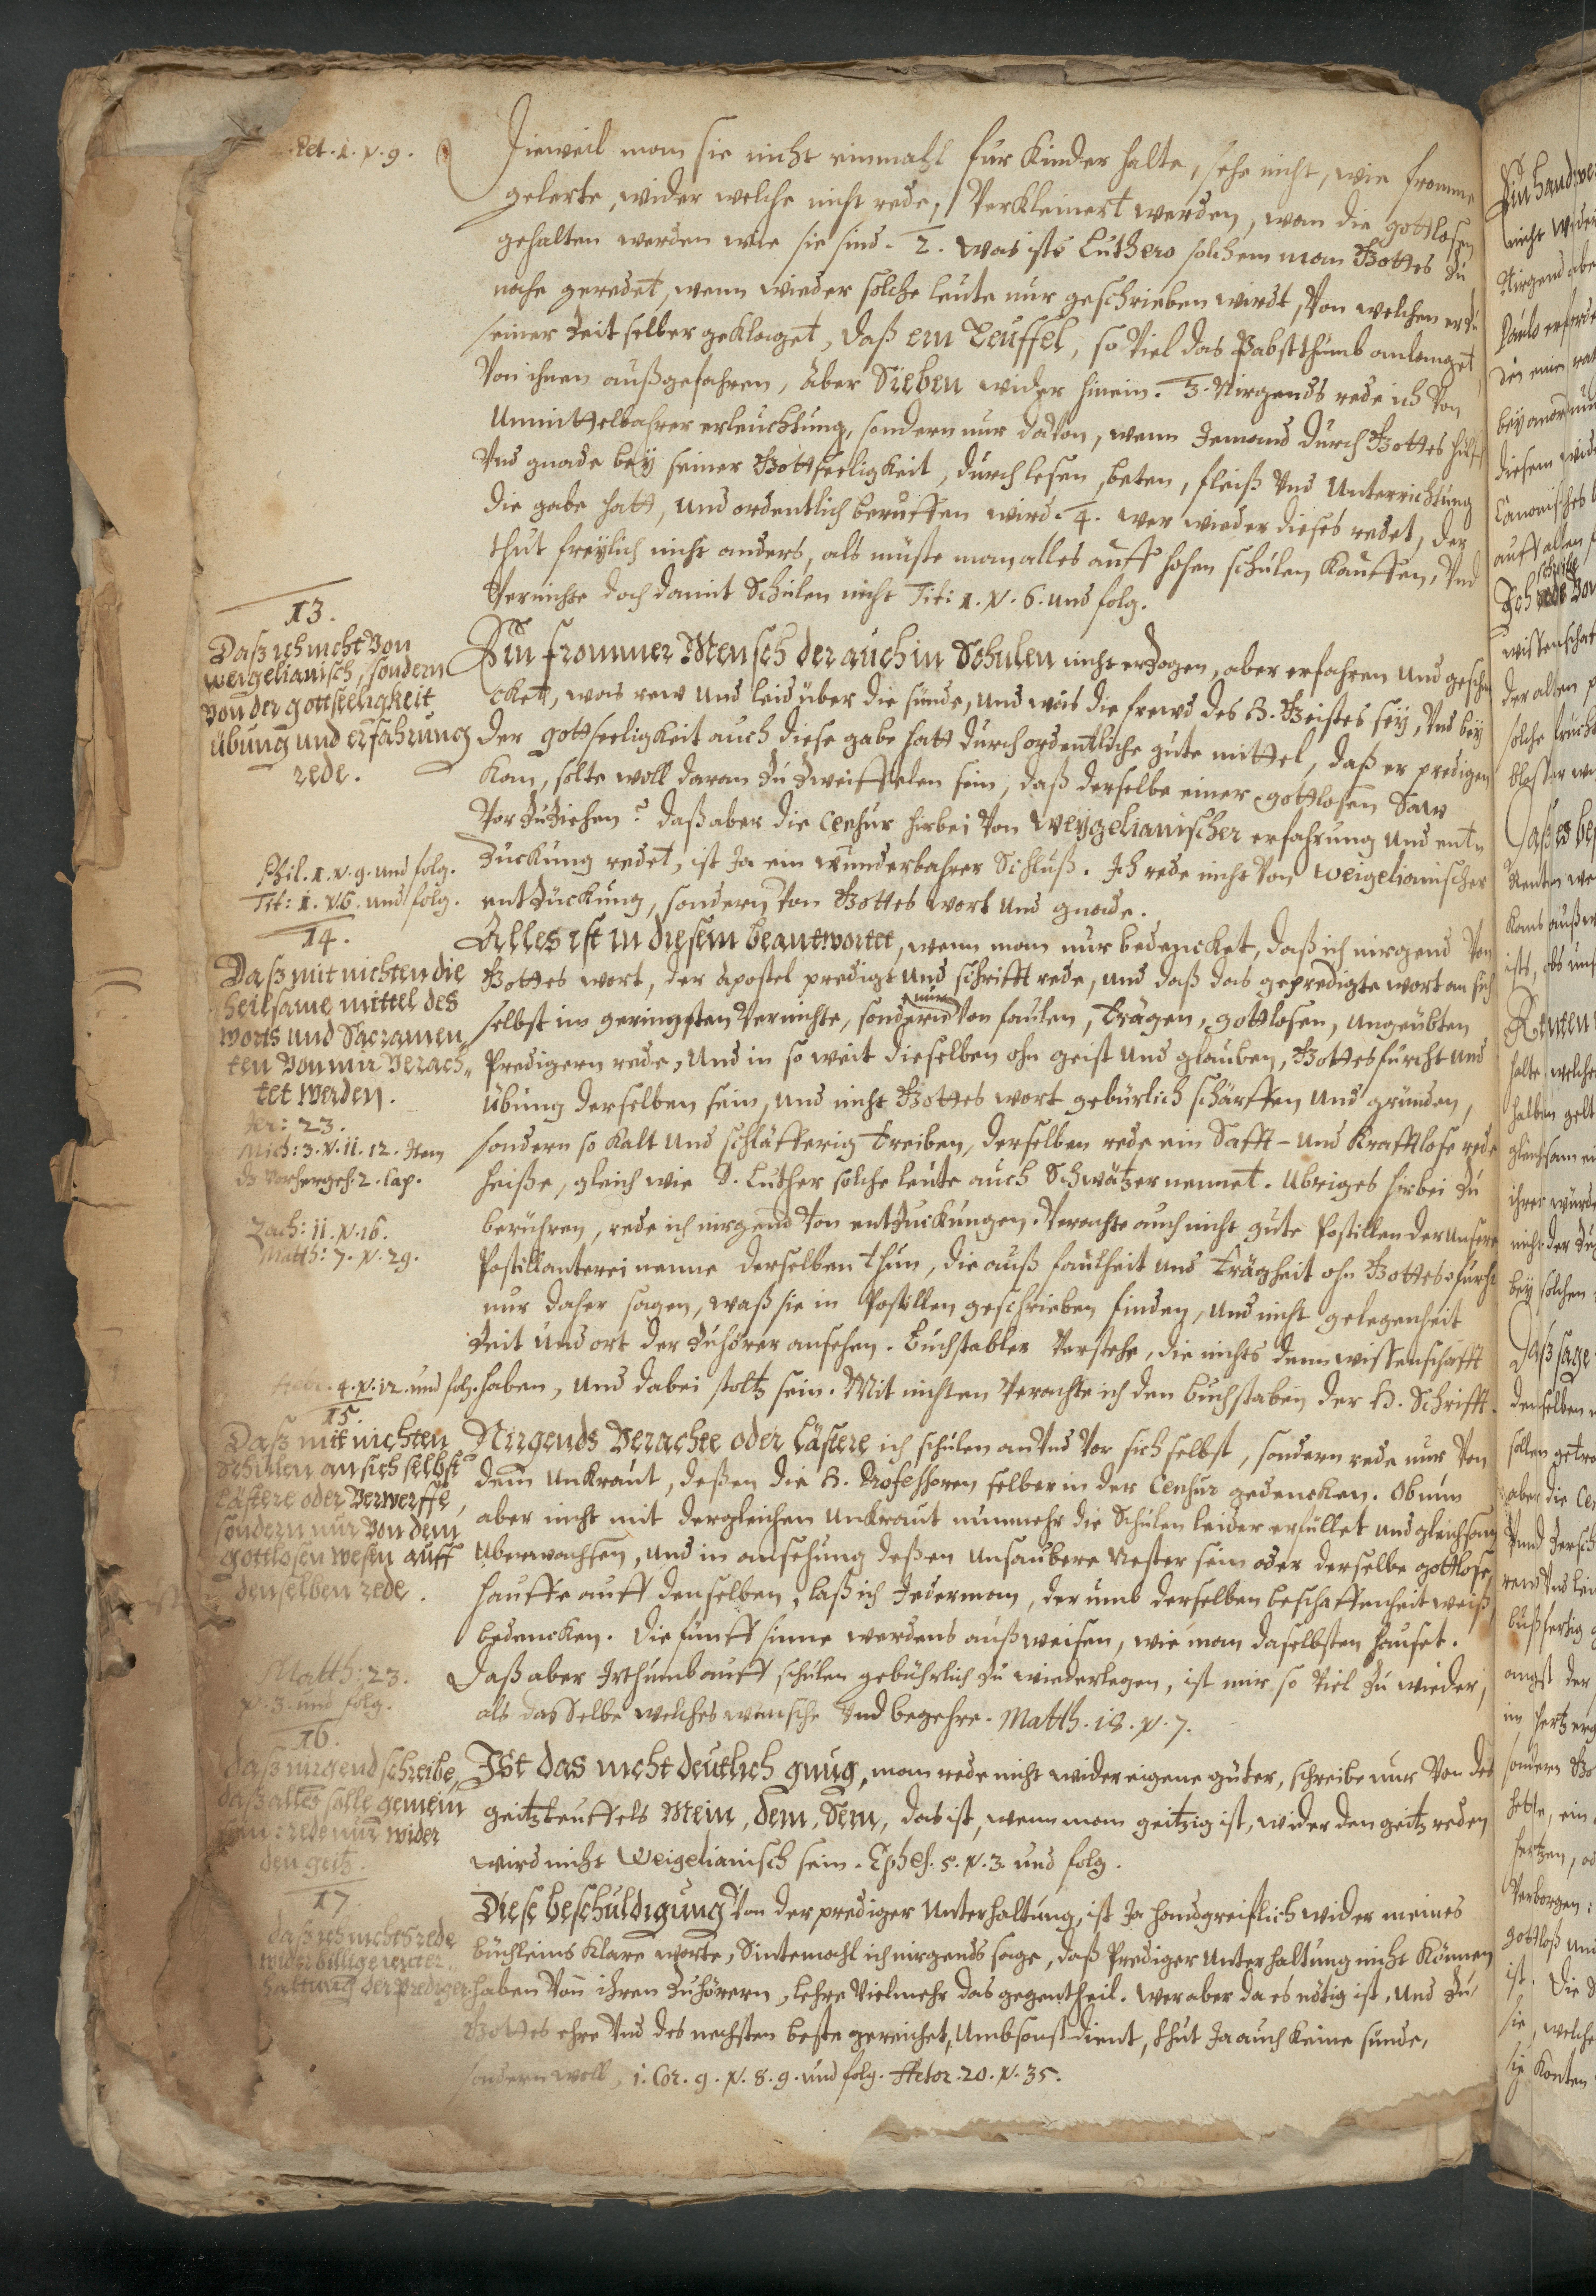 Pet. 1. v. 9.
Dieweil man sie nicht einmahl für Kinder halte, sehe nicht, wie fromme
gelerte, wider welche nicht rede, Verkleinert werden, wan die gottlosen
gehalten werden wie sie sind. 2. was ists Luthero solchem man Gottes zu
nahe geredet, wenn wieder solche leute nur geschrieben wirdt, Von welchen er zu
seiner Zeit selber geklaget, daß ein Teuffel, so Viel das Pabstthumb anlanget,
Von ihnen außgefahren, aber Sieben wider hinein. 3. Nirgends rede ich Von
Unmittelbahrer erleuchtung, sondern nur daVon, wenn Jemand durch Gottes hülff
Vnd gnade bey seiner Gottseeligkeit, durch lesen, beten, fleiß Vnd Unterrichtung
die gabe hatt, und ordentlich beruffen wird. 4. wer wieder dieses redet, der
thut freylich nicht anders, als müste man alles auff hohen schulen Kauffen, Vnd
Vernichte doch damit Schulen nicht Tit: 1. v. 6. und folg.
13.
Daß ich nicht Von
weigelianisch, sondern
Von der gottseeligkeit
übung und erfahrung
rede.
Ein frommer Mensch der auch in Schulen nicht erzogen, aber erfahren und geschme
cket, was rew und leid über die sünde, und was die frewd des H. Geistes sey, Vnd bey
der gottseeligkeit auch diese gabe hatt durch ordentliche gute mittel, daß er predigen
Kan, solte woll daran zu Zweiffelen sein, daß derselbe einer gottlosen Saw
Vor zu Ziehen? daß aber die Censur hirbei Von weygelianischer erfahrung und ent„
Zuckung redet, ist Ja ein wunderbahrer Schluß. Ich rede nicht Von weigelianischer
entzückung, sondern Von Gottes wort und gnade.
Phil. 1. v. 9. und folg.
Tit: 1. v. 6. und folg.
14.
Daß mit nichten die
heilsame mittel des
worts und Sacramen„
ten Von mir Verach„
tet werden.
Jer: 23.
Mich: 3. v. 11. 12. Item
dz Vorhergeh. 2. Cap.
Zach: 11. v. 16.
Matth: 7. v. 29.
Alles ist in diesem beantwortet, wenn man nur bedencket, daß ich nirgend Von
Gottes wort, der Apostel predigt und schrifft rede, und daß das gepredigte wort an sich
selbst im geringsten Vernichte, sondern nur Von faulen, Trägen, gottlosen, ungeübten
Predigern rede, Und in so weit dieselben ohn geist und glauben, Gottesfurcht und
übung derselben sein, und nicht Gottes wort gebürlich schärffen und gründen,
sondern so kalt und schläfferig Treiben, derselben rede ein Safft- und Krafftlose rede
heiße, gleich wie D. Luther solche leute auch Schwätzer nennet. Ubriges hirbei zu
berühren, rede ich nirgend Von entzuckungen. Verachte auch nicht gute Postillen der unsern
Postillanterei nenne derselben thun, die auß faulheit und Trägheit ohn Gottesfurcht
nur daher sagen, waß sie in Postillen geschrieben finden, und nicht gelegenheit
Zeit und ort der Zuhörer ansehen. Buchstabler Verstehe, die nichts denn wissenschafft
Hebr. 4. v. 12. und folg.
haben, und dabei stoltz sein. Mit nichten Verachte ich den buchstaben der H. Schrifft.
15.
Daß mit nichten
Schulen an sich selbst
lästere oder Verwerffe,
sondern nur Von dem
gottlosen wesen auff
denselben rede.
Nirgends Verachte oder lästere ich schulen an Vnd Vor sich selbst, sondern rede nur Von
dem Unkraut, deßen die H. Professoren selber in der Censur gedencken. Ob nun
aber nicht mit dergleichen unkraut nunmehr die Schulen leider erfüllet und gleichsam
uberwachsen, und in ansehung deßen unsaubere Nester sein oder derselbe gottlose
hauffe auff denselben, laß ich Jederman, der umb derselben beschaffenheit weiß,
bedencken. Die fünff sinne werdens außweisen, wie man daselbsten hauset.
Daß aber Irthumb auff schulen gebührlich zu wiederlegen, ist mir so Viel zu wieder,
als dasselbe welches wünsche Vnd begehre. Matth. 18. v. 7.
Matth: 23.
v. 3. und folg.
16.
daß nirgend schreibe,
daß alles solle gemein
sein: rede nur wider
den geitz.
Ist das nicht deutlich gnug, man rede nicht wider eigene güter, schreibe nur Von des
geitzteuffels Mein, Dein, Sein, das ist, wenn man geitzig ist, wider den geitz reden
wird nicht Weigelianisch sein. Ephes. 5. v. 3. und folg.
17.
daß ich nichts rede
wider billige unter„
haltung der prediger
Diese beschuldigung Von der prediger Unterhaltung, ist Ja handgreiflich wider meines
büchleins Klare worte, Sintemahl ich nirgends sage, daß Prediger Unterhaltung nicht Können
haben Von ihren Zuhörern, lehre Vielmehr das gegentheil. Wer aber da es nötig ist, und zu
Gottes ehre Vnd des nechsten beste gereichet, umbsonst dient, thut Ja auch keine sünde,
sondern woll, 1. Cor. 9. v. 8. 9. und folg. Actor. 20. v. 35.